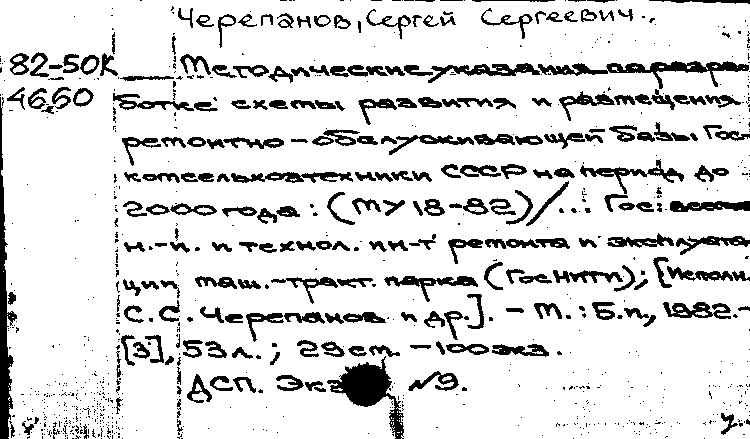 Черепанов, Сергей Сергеевич.
82-50К Методические указания по разра-
4650 ботке схемы развития и размещения
ремонтно-обслуживающей базы Гос-
комсельхозтехники СССР на период до
2000 года: (МУ 18-82)/... Гос. всесоюз.
н.-и. и технол. ин-т ремонта и эксплуата-
ции маш.-тракт. парка (ГосНИТИ); [Исполн.
С.С. Черепанов и др.]. - М.: Б.и., 1982.-
[3], 53 л.; 29 см. - 100 экз.
ДСП. Экз. №9.